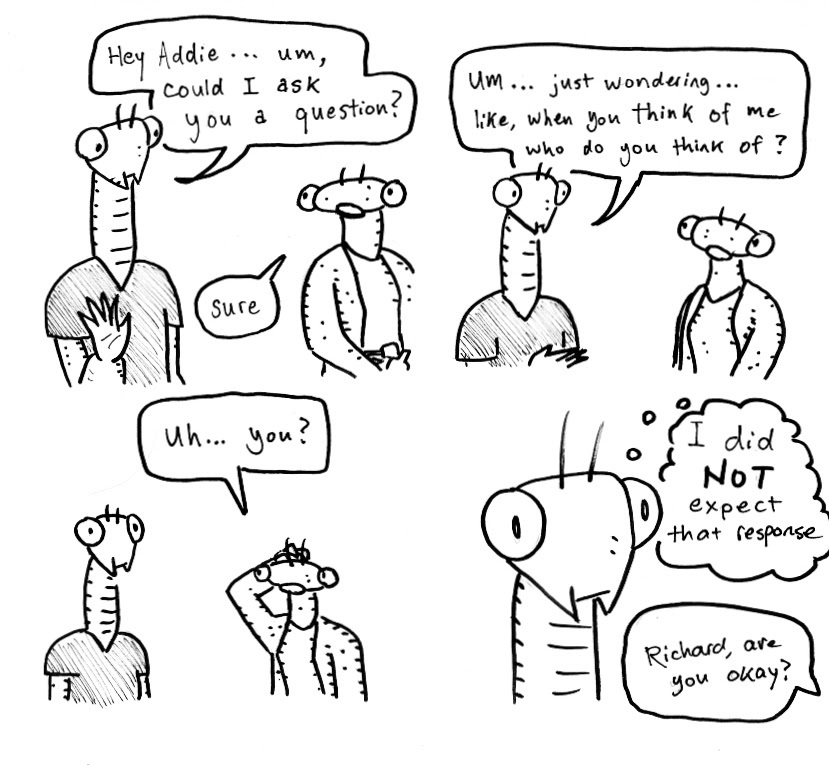 Hey Addie... um,
could I ask
you a question?
Sure
Um... just wondering...
like, when you think of me
who do you think of?
Uh... you?
I did
NOT
expect
that response
Richard, are
you okay?